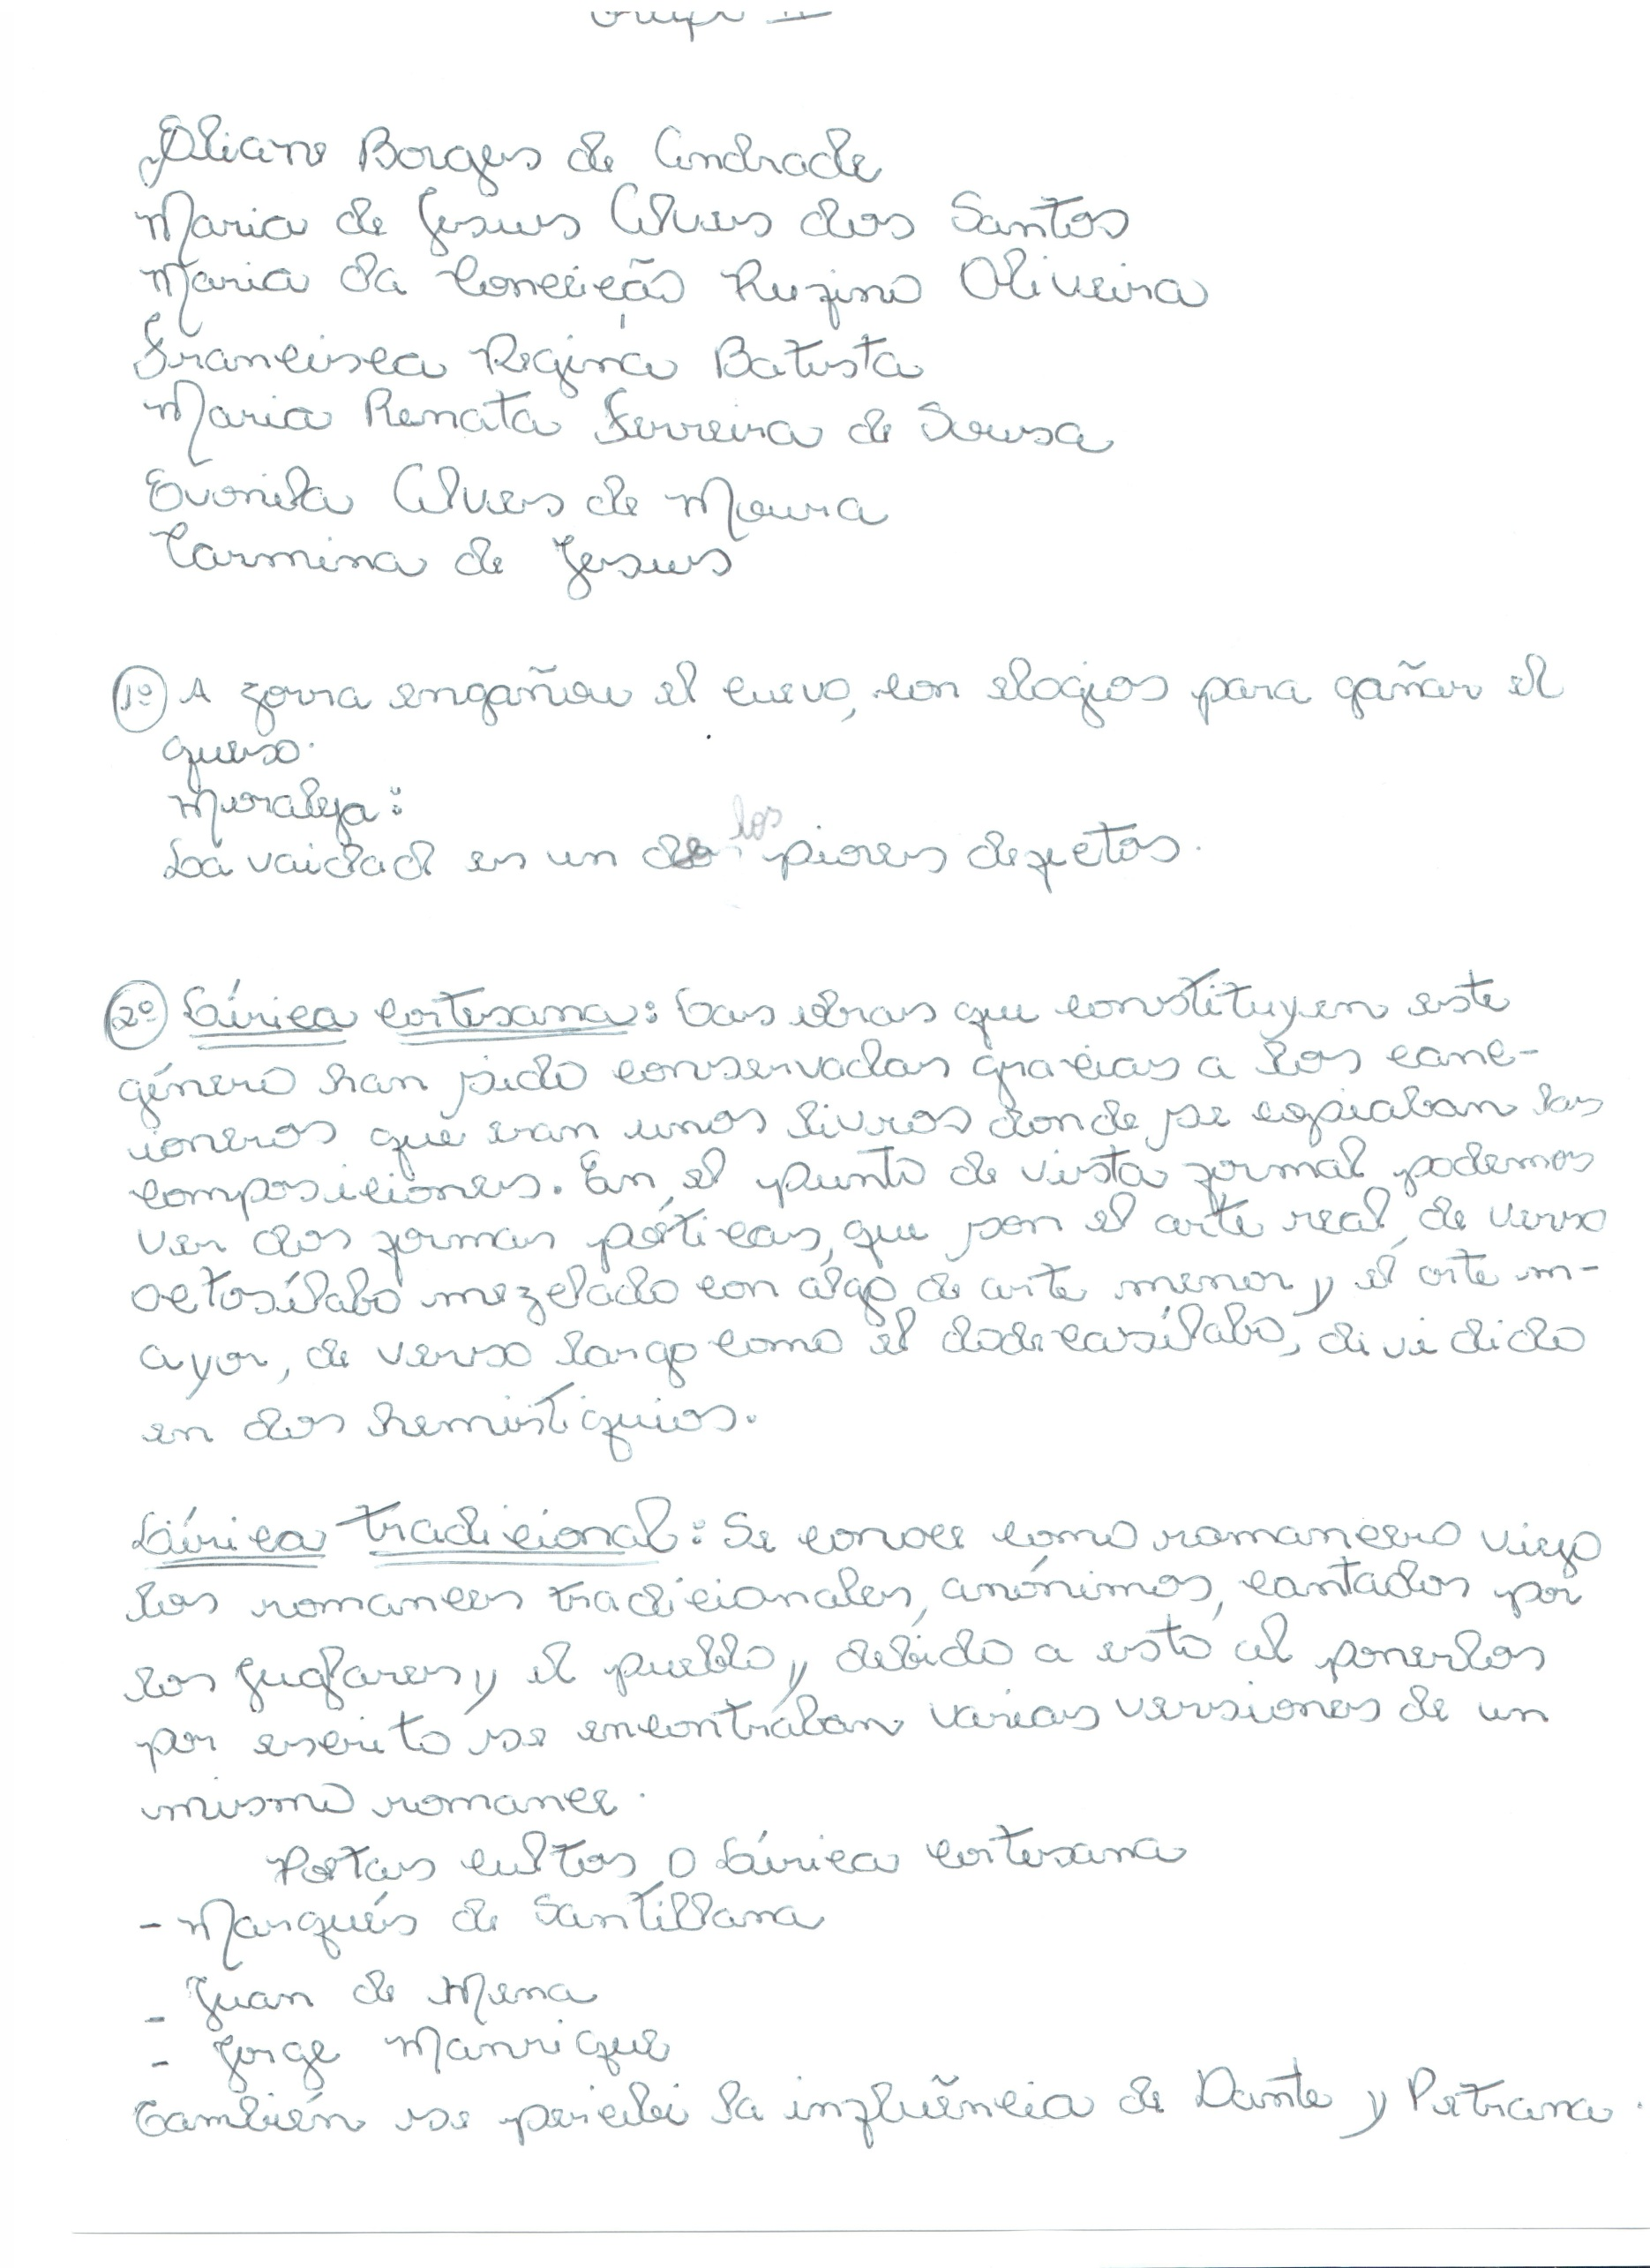 Eliane Borges de Andrade
Maria de Jesus Alves dos Santos
Maria da Conceição Rufino Oliveira
Francisca Regina Batista
Maria Renata Ferreira de Sousa
Evonilda Alves de Moura
Carmina de Jesus
1º A zorra engañou el cuevo, con elogios para gañar el
queso.
Moraleja:
La vaidad es un de los piores defetos.
2º Lírica cortesana: Las obras que constituyen este
género han sido conservadas gracias a los canc-
ioneros que eran unos livros donde se copiaban las
composiciones. En el punto de vista formal podemos
ver dos formas poéticas, que son el arte real, de verso
octosílabo mezclado con algo de arte menor y el arte m-
ayor, de verso largo como el dodecasílabo, dividido
en dos hemistiquios.
Lírica tradicional: Se conoce como romancero viejo
los romances tradicionales, anónimos, cantados por
los juglares y el pueblo y debido a esto al ponerlos
por escrito se encontraban varias versiones de un
mismo romance.
Poetas cultos o Lírica cortesana
- Marqués de Santillana
- Juan de Mena
- Jorge Manrique
También se percibi la influência de Dante y Petrarca.